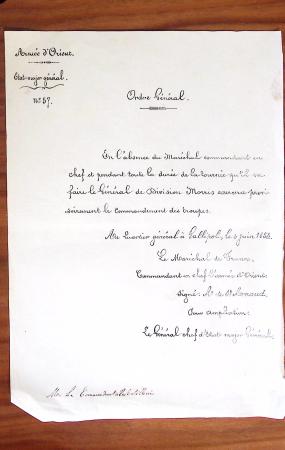 Armée d'Orient.
Etat-major général.
N° 57.
Ordre Général.
En l'absence du Maréchal commandant en
chef et pendant toute la durée de la tournée qu'il va
faire le Général de Division Morris exercera provi-
soirement le commandement des troupes.
Au Quartier général à Gallipoli, le 6 juin 1854.
Le Maréchal de France
Commandant en chef l'armée d'Orient.
Signé: A. de St Arnaud.
Pour ampliation:
Le Général chef d'Etat-major Général.